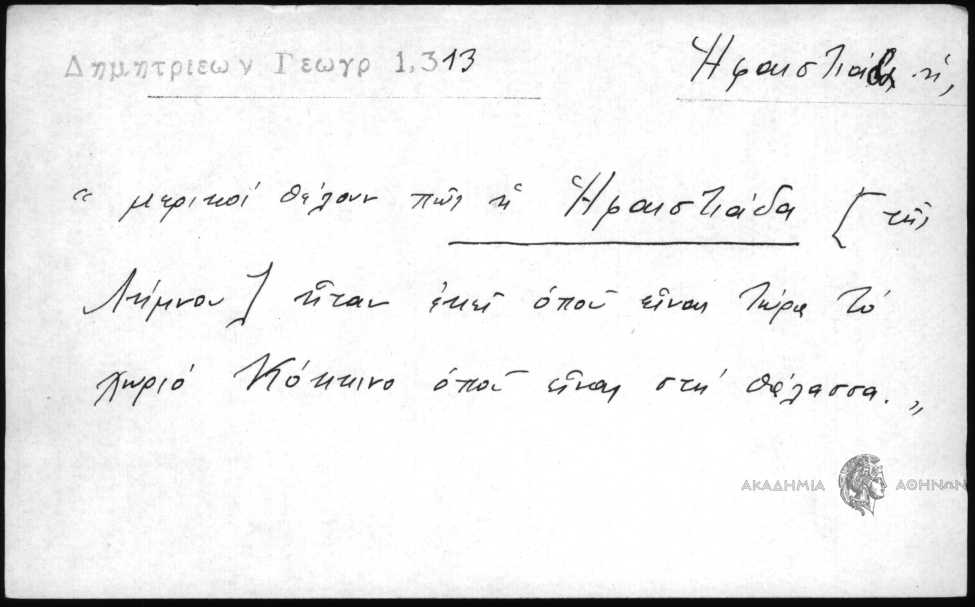 Δημητριεων Γεωγρ 1,313
Ἡφαιστιάδα ἡ,
“ μερικοί θέλουν πῶς ἡ Ἡφαιστιάδα [τῆς
Λήμνου] ἦταν ἐκεῖ ὁποῦ εἶναι τώρα τό
χωριό Κόκκινο ὁποῦ εἶναι στή θάλασσα. „
ΑΚΑΔΗΜΙΑ ΑΘΗΝΩΝ